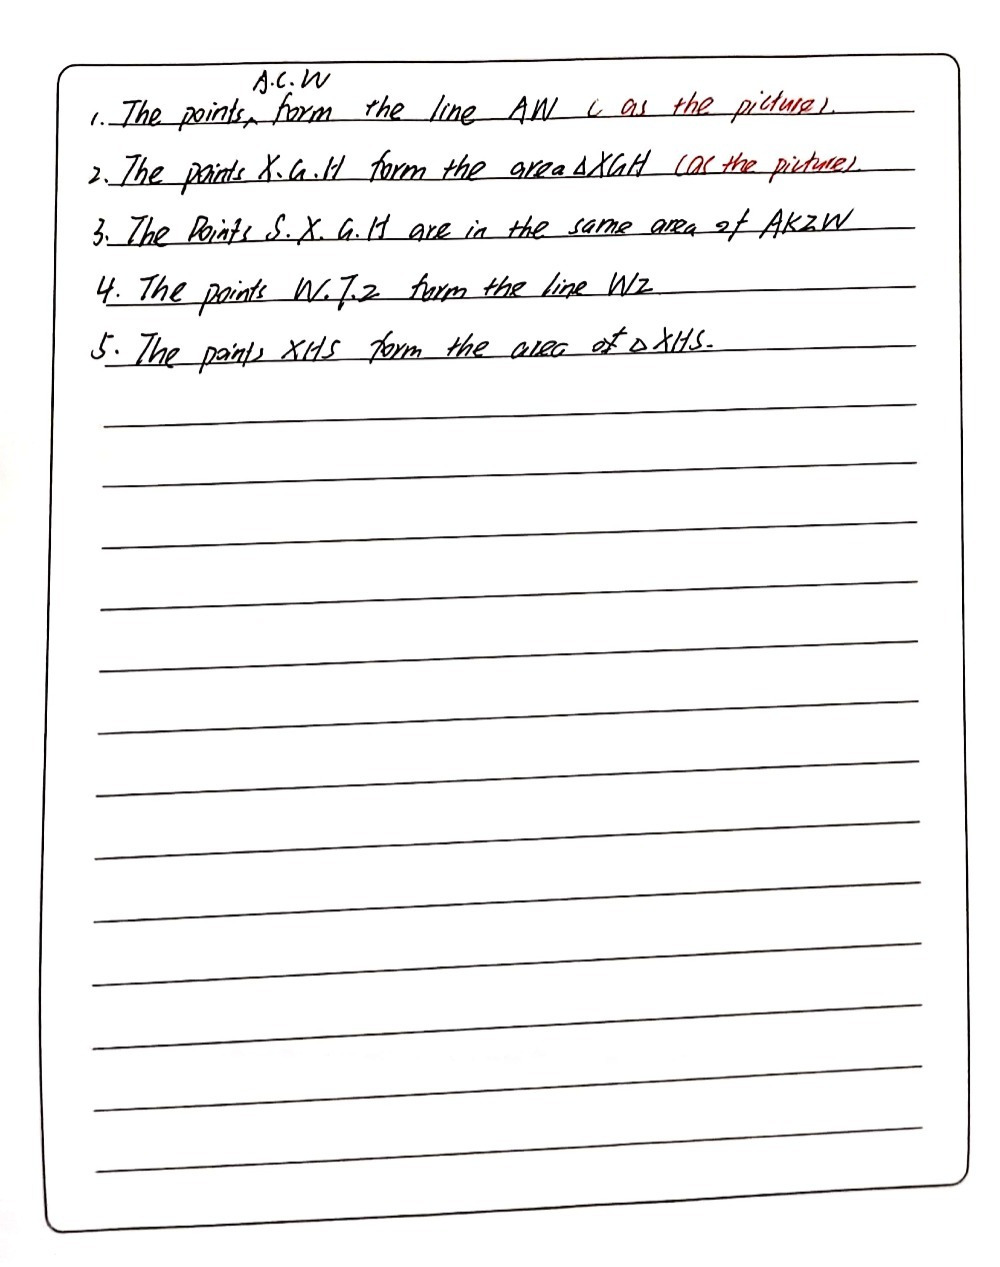 A.C.W
1. The points‸ form the line AW ( as the picture).
2. The points X.G.H form the area △XGH (as the picture).
3. The Points S.X.G.H are in the same area of AKZW
4. The points W.J.Z form the line WZ
5. The points XHS form the area of △XHS.